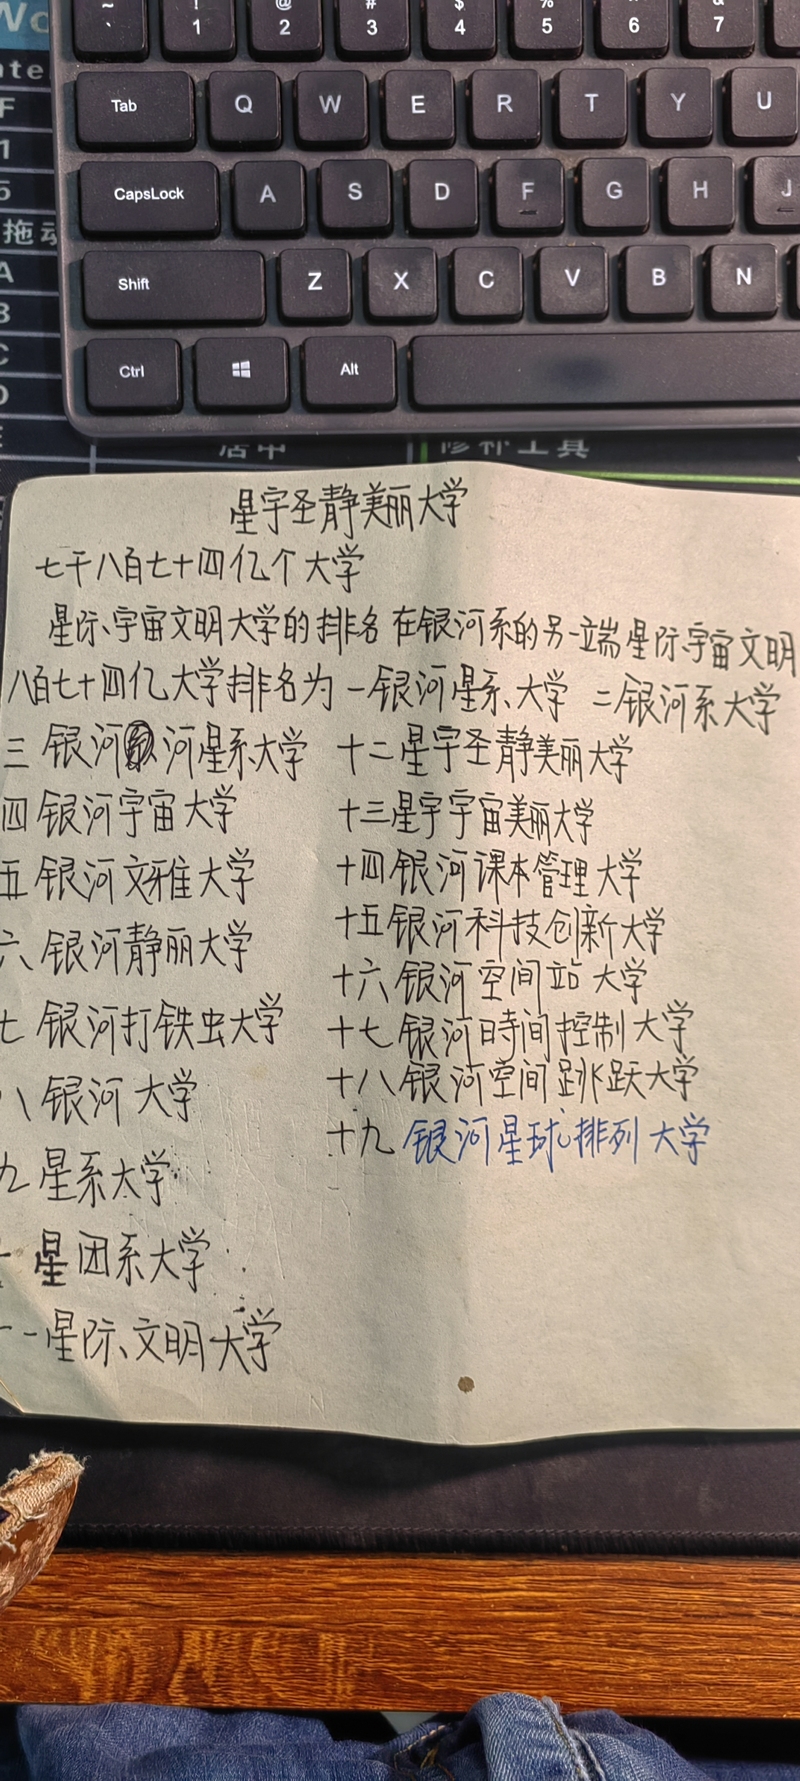 ~ ! @ # $ % &
` 1 2 3 4 5 6 7
Tab Q W E R T Y U
CapsLock A S D F G H J
Shift Z X C V B N
Ctrl Alt
居中 修补工具
拖动
星宇圣静美丽大学
七千八百七十四亿个大学
星际、宇宙文明大学的排名在银河系的另一端星际、宇宙文明
八百七十四亿大学排名为一银河星系、大学 二银河系大学
三 银河 河星系大学 十二星宇圣静美丽大学
四银河宇宙大学 十三星宇宇宙美丽大学
五银河文雅大学 十四银河课本管理大学
六银河静丽大学 十五银河科技创新大学
七 银河打铁虫大学 十六银河空间站大学
八银河大学 十七银河時间控制大学
九星系大学 十八银河空间跳跃大学
星团系大学 十九银河星球排列大学
十一星际、文明大学